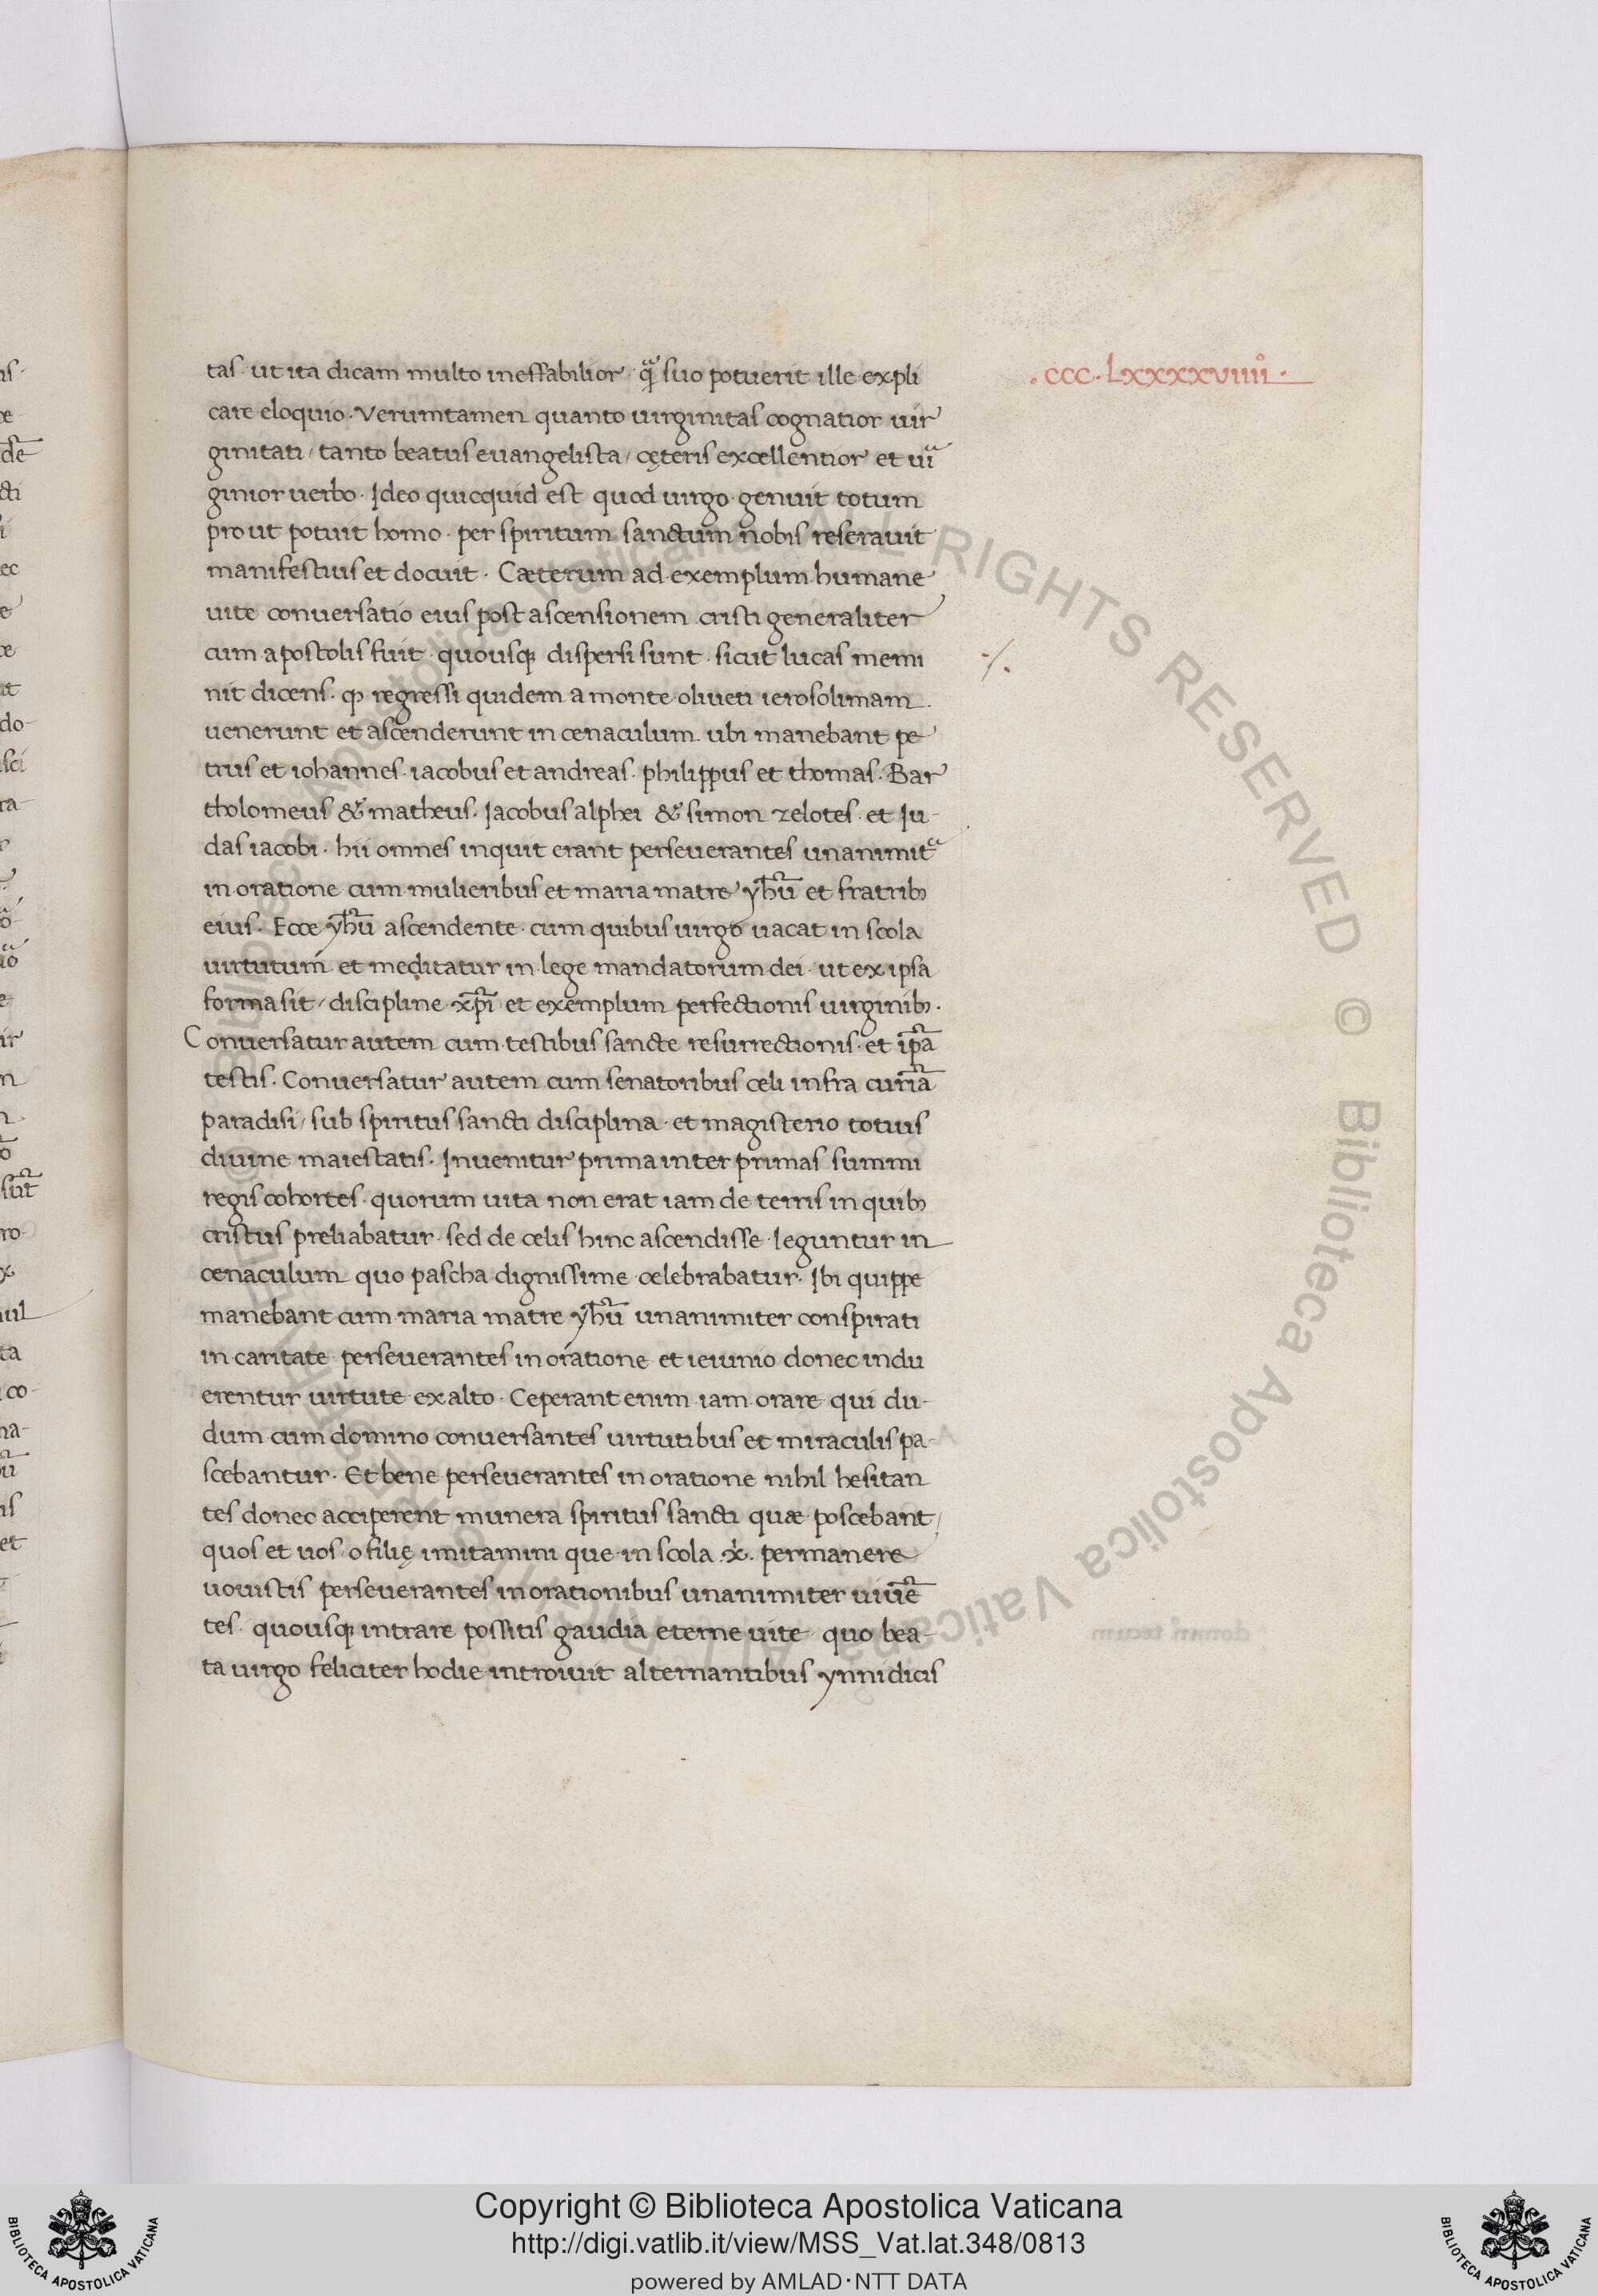 tas · ut ita dicam multo ineffabilior · qͣ suo potuerit ille expli
.CCC.LXXXXVIIIIº.
care eloquio · Verumtamen quanto uirginitas cognatior uir
ginitati / tanto beatus euangelista / cęteris excellentior et uiͣ
ginior uerbo · Ideo quicquid est quod uirgo genuit totum
prout potuit homo · per spiritum sanctum nobis reserauit
manifestius et docuit · Cæterum ad exemplum humane
uite conuersatio eius post ascensionem cristi generaliter
cum apostolis fuit · quousq; dispersi sunt · sicut lucas memi
nit dicens · ꝙ regressi quidem a monte oliueti ierosolimam
uenerunt et ascenderunt in cenaculum ubi manebant pe
trus et iohannes · iacobus et andreas · philippus et thomas · Bar
tholomeus & matheus · Iacobus alphei & simon zelotes · et Iu-
das iacobi · hii omnes inquit erant perseuerantes unanimitͣ
in oratione cum mulieribus et maria matre yhū et fratrib;
eius · Ecce yhū ascendente · cum quibus uirgo uacat in scola
uirtutum · et meditatur in lege mandatorum dei · ut ex ipsa
forma sit / discipline xp̄i et exemplum perfectionis uirginib; ·
Conuersatur autem cum testibus sancte resurrectionis · et ip̄a
testis · Conuersatur autem cum senatoribus celi infra curiā
paradisi / sub spiritus sancti disciplina · et magisterio totius
diuine maiestatis · Inuenitur prima inter primas summi
regis cohortes · quorum uita non erat iam de terris in quib;
cristus preliabatur · sed de celis hinc ascendisse leguntur in
cenaculum quo pascha dignissime celebrabatur · Ibi quippe
manebant cum maria matre yhū unanimiter conspirati
in caritate perseuerantes in oratione et ieiunio donec indu
erentur uirtute ex alto · Ceperant enim iam orare qui du-
dum cum domino conuersantes uirtutibus et miraculis pa-
scebantur · Et bene perseuerantes in oratione nihil hesitan
tes donec acciperent munera spiritus sancti quæ poscebant /
quos et uos o filię imitamini que in scola .x. permanere
uouistis perseuerantes in orationibus unanimiter uiuē
tes · quousq; intrare possitis gaudia eterne uite quo bea-
ta uirgo feliciter hodie introiuit alternantibus ynnidicis
Copyright © Biblioteca Apostolica Vaticana
http://digi.vatlib.it/view/MSS_Vat.lat.348/0813
powered by AMLAD·NTT DATA